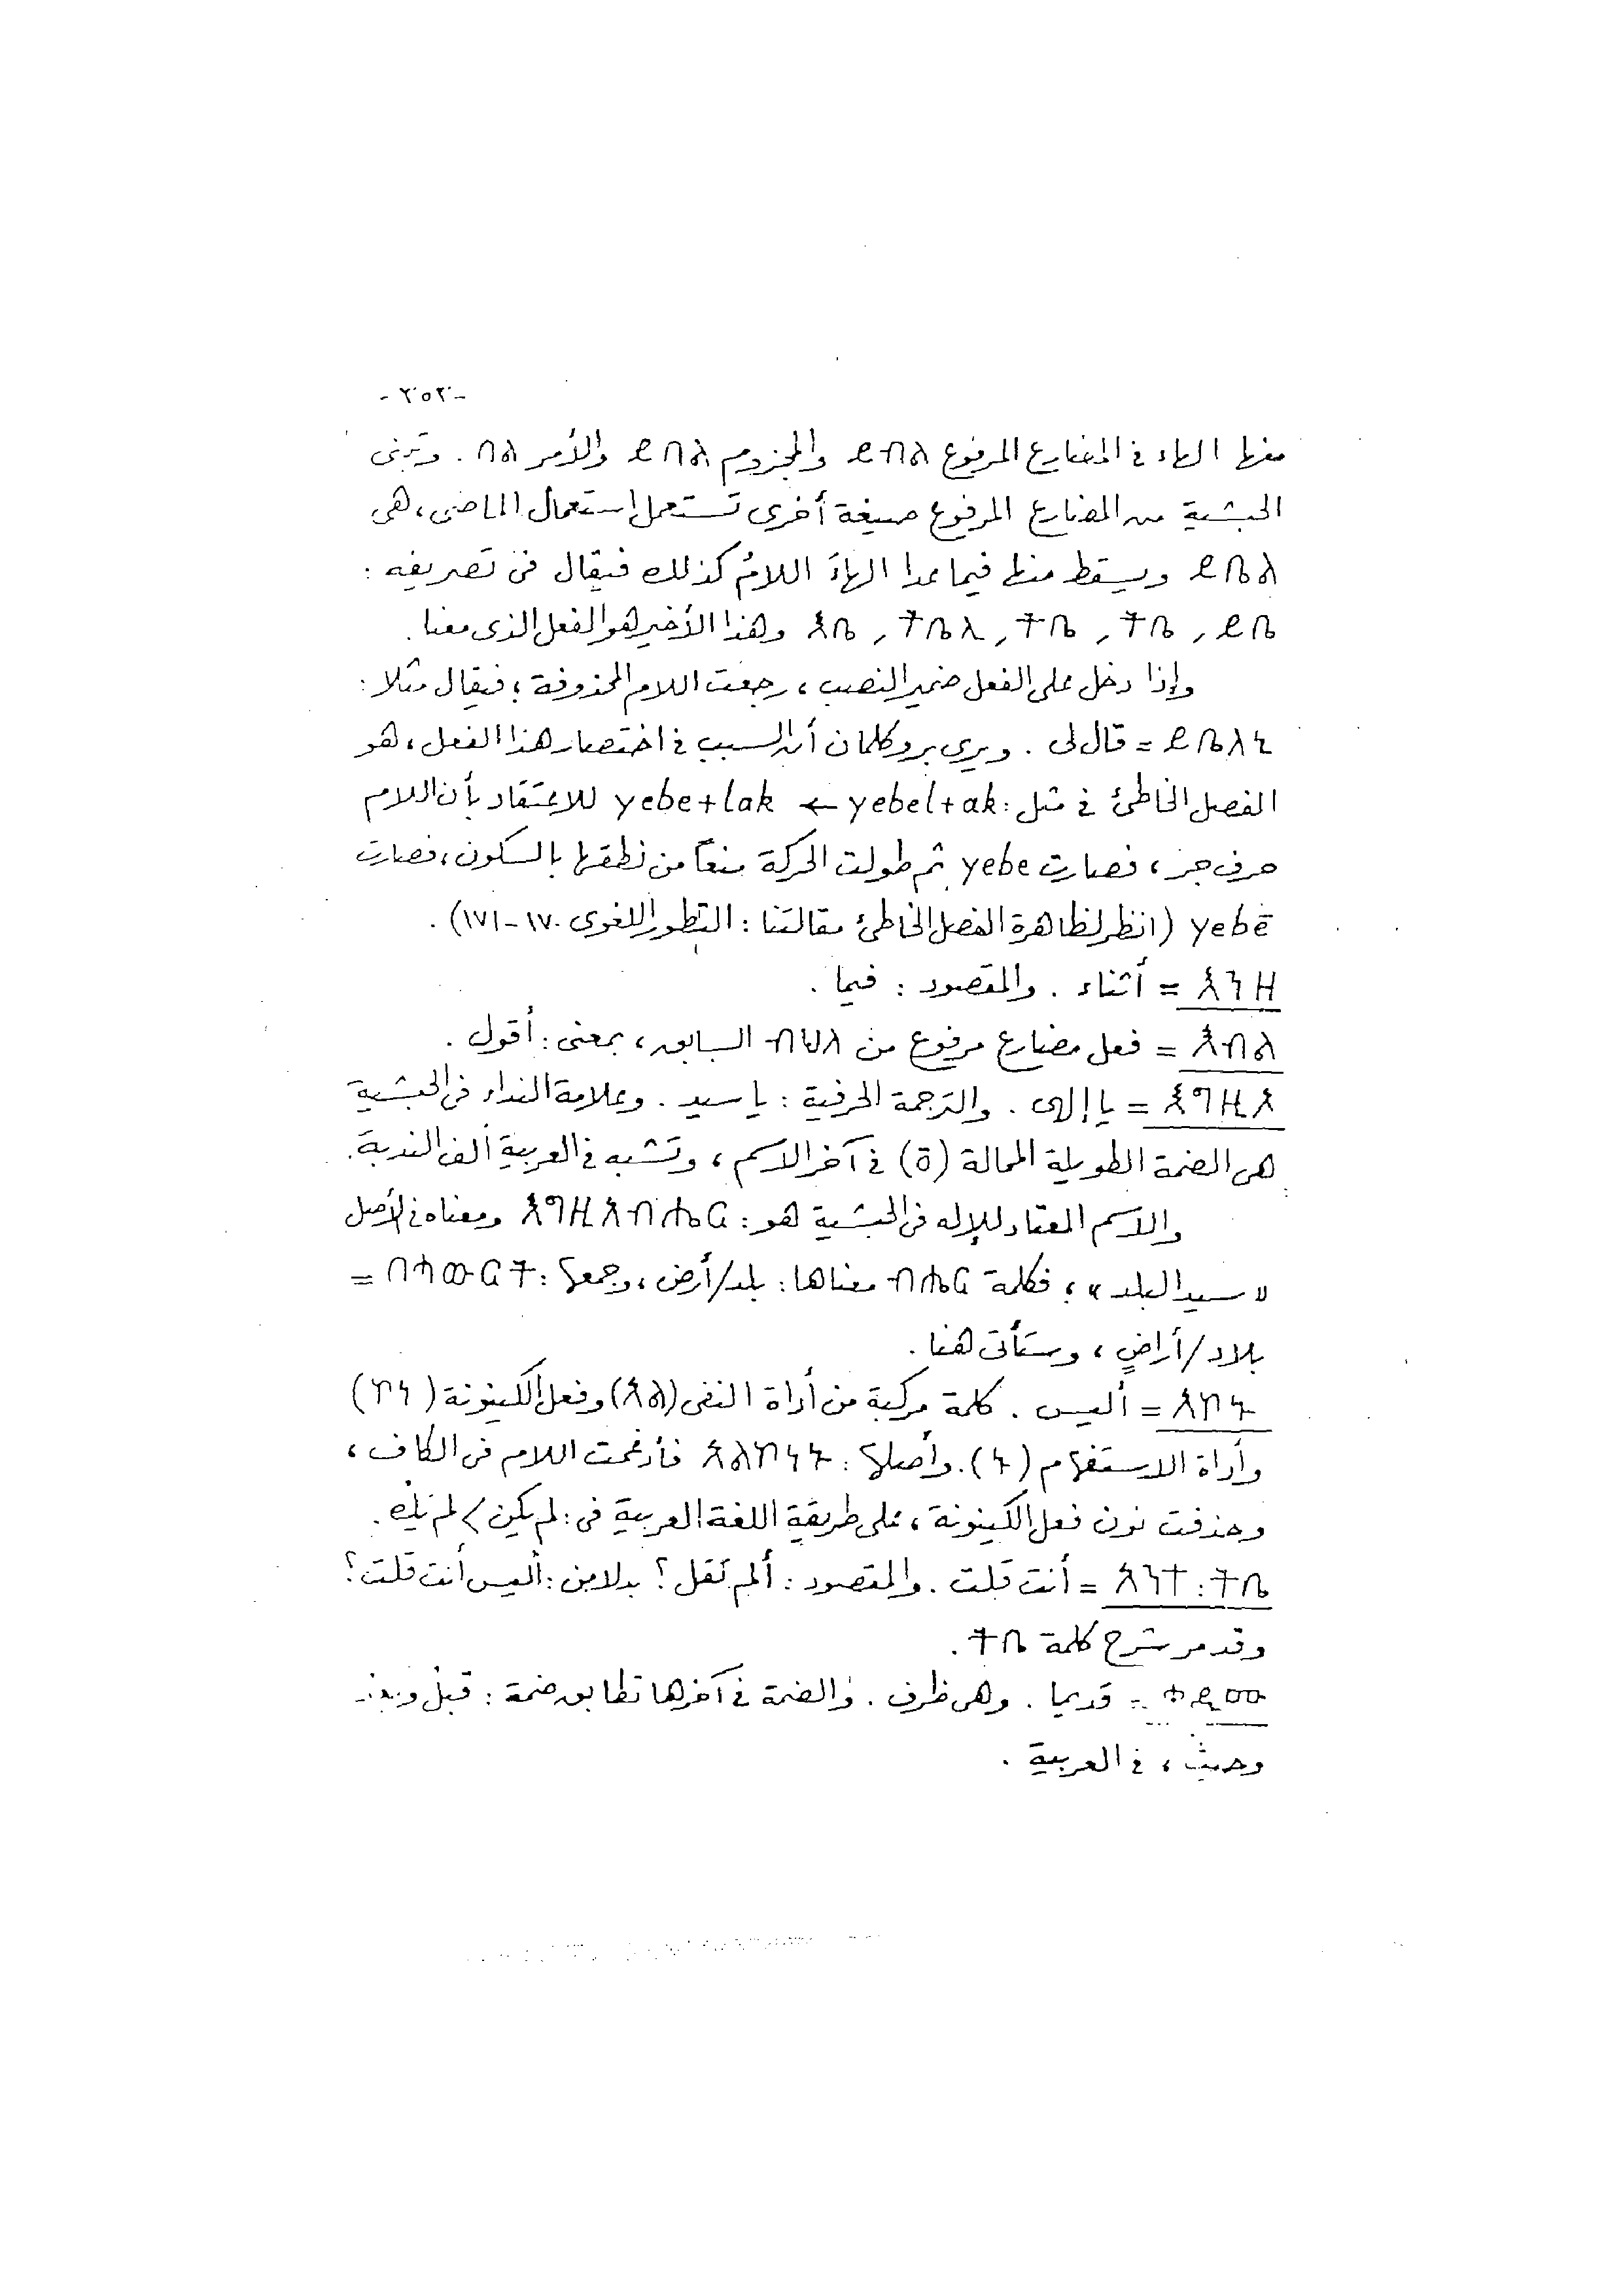 -٢٥٢-
منها الهاء في المضارع المرفوع ይብል والمجزوم ይበል والأمر በል . وتبنى
الحبشية من المضارع المرفوع صيغة أخرى تستعمل استعمال الماضى، هى
ይቤል ويسقط منها فيما عدا الهاءَ اللامُ كذلك فيقال فى تصريفه :
ይቤ , ትቤ , ትቤ , ትቤሊ , እቤ وهذا الأخير هو الفعل الذى معنا.
وإذا دخل على الفعل ضمير النصب، رجعت اللام المحذوفة ؛ فيقال مثلا :
ይቤለኒ = قال لى . ويرى بروكلمان أن السبب في اختصار هذا الفعل، هو
الفصل الخاطئ في مثل : yebel+ak ← yebe+lak للاعتقاد بأن اللام
حرف جر، فصارت yebe ثم طولت الحركة منعاً من نطقها بالسكون، فصارت
yebē (انظر لظاهرة الفصل الخاطئ مقالتنا : التطور اللغوى ١٧٠-١٧١) .
እንዘ = أثناء . والمقصود : فيما .
እብል = فعل مضارع مرفوع من ብህለ السابق، بمعنى : أقول .
እግዚኦ = يا إلهى . والترجمة الحرفية : يا سيد . وعلامة النداء فى الحبشية
هى الضمة الطويلة الممالة (ō) في آخر الاسم، وتشبه في العربية ألف الندبة.
والاسم المعتاد للإله فى الحبشية هو : እግዚአብሔር ومعناه في الأصل
« سيد البلد » ؛ فكلمة ብሔር معناها : بلد/أرض، وجمعها : በሓውርት =
بلاد/أراضٍ ، وستأتى هنا .
አኮኑ = أليس . كلمة مركبة من أداة النفى (አል) وفعل الكينونة (ኮነ)
وأداة الاستفهام (ኑ). وأصلها : አልኮነኑ فأدغمت اللام فى الكاف ،
وحذفت نون فعل الكينونة، على طريقة اللغة العربية فى : لم يكن > لم يك .
አንተ : ትቤ = أنت قلت . والمقصود : ألم تقل ؟ بدلا من : أليس أنت قلت ؟
وقد مر شرح كلمة ትቤ .
ቀዲሙ = قديما . وهى ظرف . والضمة في آخرها تطابق ضمة : قبلُ وبعدُ
وحيثُ ، في العربية .